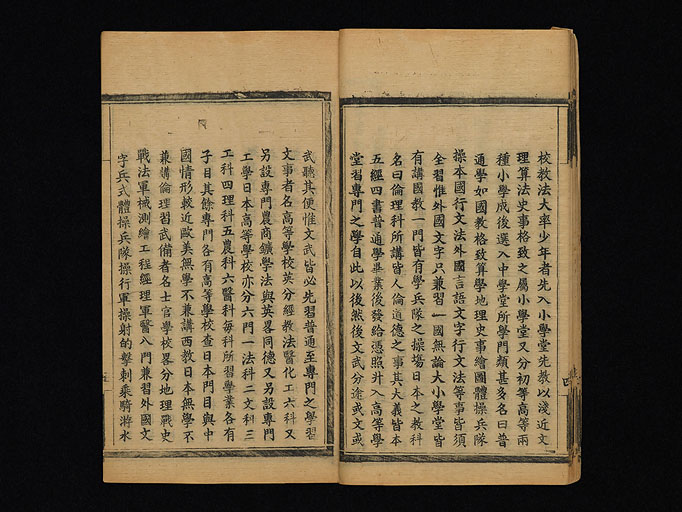 校教法大率少年者先入小學堂先教以淺近文
理算法史事格致之屬小學堂又分初等高等兩
種小學成後選入中學堂所學門類甚多名曰普
通學如國教格致算學地理史事繪圖體操兵隊
操本國行文法外國言語文字行文法等事皆須
全習惟外國文字只兼習一國無論大小學堂皆
有講國教一門皆有學兵隊之操場日本之教科
名曰倫理科所講皆人倫道德之事其大義皆本
五經四書普通學畢業後發給憑照升入高等學
堂習專門之學自此以後然後文武分途或文或
四
武聽其便惟文武皆必先習普通至專門之學習
文事者名高等學校英分經教法醫化工六科又
另設專門農商鑛學法與英畧同德又另設專門
工學日本高等學校亦分六門一法科二文科三
工科四理科五農科六醫科每科所習學業各有
子目其餘專門各有高等學校查日本門目與中
國情形較近歐美無學不兼講西教日本無學不
兼講倫理習武備者名士官學校畧分地理戰史
戰法軍械測繪工程經理軍醫八門兼習外國文
字兵式體操兵隊操行軍操射的擊刺乘騎游水
五